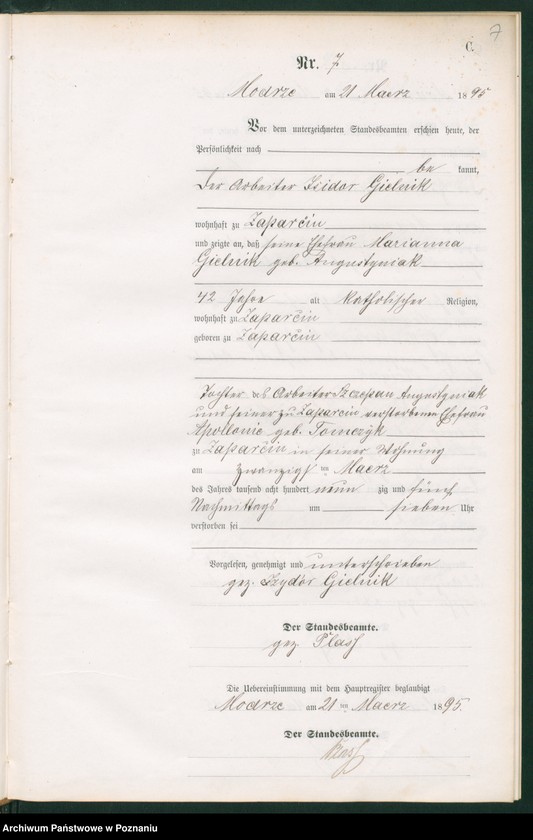 7
C.
Nr. 7
Modrze am 21 Maerz 1895
Vor dem unterzeichneten Standesbeamten erschien heute, der
Persönlichkeit nach
be kannt,
Der Arbeiter Isidor Gielnik
wohnhaft zu Zaparcin
und zeigte an, daß seine Ehefrau Marianna
Gielnik geb. Augustyniak
42 Jahre alt katholischer Religion,
wohnhaft zu Zaparcin
geboren zu Zaparcin
Tochter des Arbeiter Szczepan Augustyniak
und seiner zu Zaparcin verstorbenen Ehefrau
Apollonie geb. Tomczyk
zu Zaparcin in seiner Wohnung
am zwanzigsten Maerz
des Jahres tausend acht hundert neun zig und fünf
Nachmittags um sieben Uhr
verstorben sei
Vorgelesen, genehmigt und unterschrieben
gez. Izydór Gielnik
Der Standesbeamte.
gez Plass
Die Uebereinstimmung mit dem Hauptregister beglaubigt
Modrze am 21 ten Maerz 1895.
Der Standesbeamte.
Plass
Archiwum Państwowe w Poznaniu